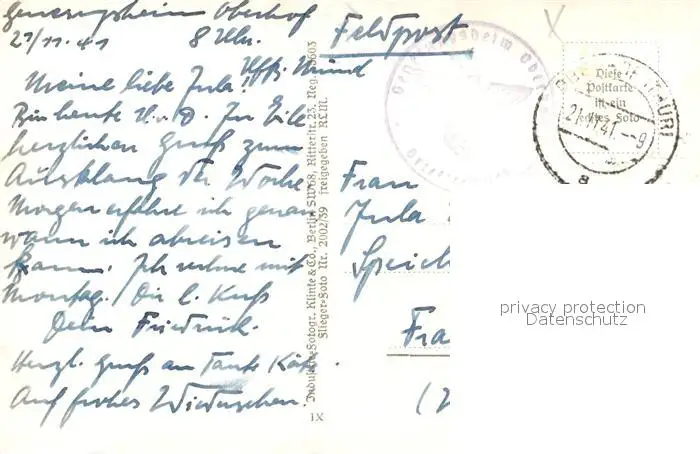 Genesungsheim Oberhof
21/11.41 8 Uhr.
Feldpost
Uffz. Münd
Meine liebe Jula!
Bin heute U.v.D. In Eile
herzlichen Gruß zum
Ausklang der Woche
Morgen erfahre ich genau
wann ich abreisen
kann. Ich rechne mit
Montag. Dir l. Kuß
Dein Friedrich.
Herzl. Gruß an Tante Kät
Auf frohes Wiedersehen.
Industrie-Fotogr. Klinke & Co., Berlin SW68, Ritterstr. 23, Neg.
Flieger-Foto Nr. 2002/39 freigegeben RLM.
IX
Genesungsheim Ober
Diese
Postkarte
ist ein
echtes Foto
21.11.41.-9
a
Frau
Jula
Speich
Fra
privacy protection
Datenschutz